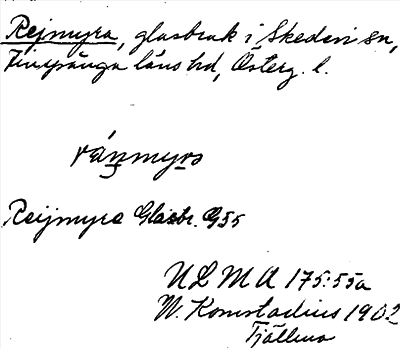 Rejmyra, glasbruk i Skedevi sn,
Finspånga läns hd, Österg. l.
Reijmyre Glasbr. G55
ULMA 175:55a
W. Komstadius 1902